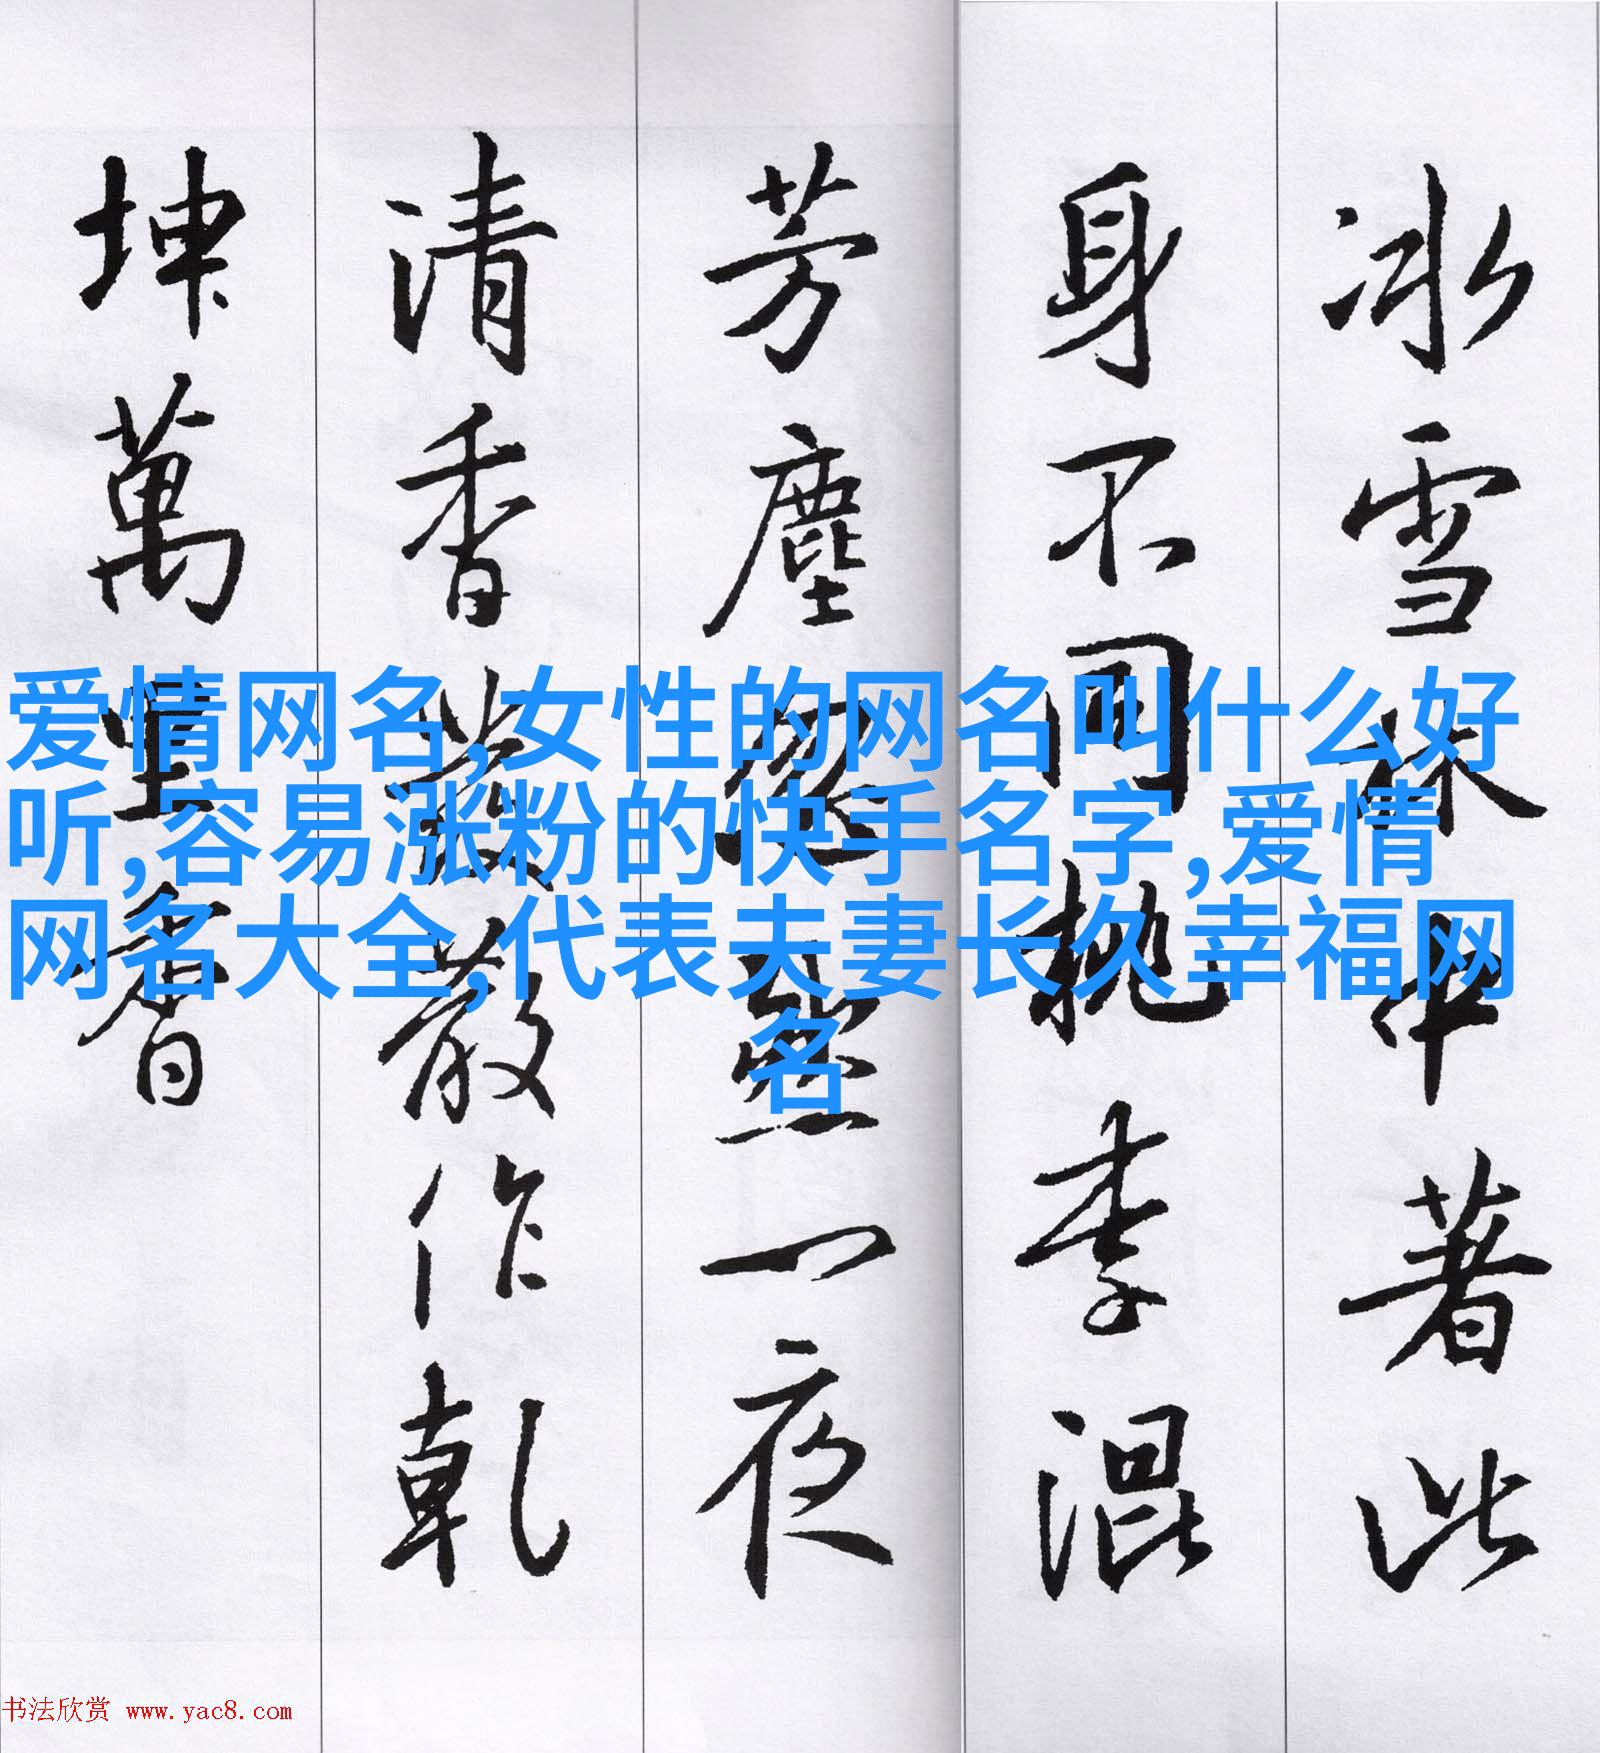 冰雪林中著此
身不同桃李混
芳塵忽然一夜
清香發散作乾
坤萬里春
爱情网名,女性的网名叫什么好
听,容易涨粉的快手名字,爱情
网名大全,代表夫妻长久幸福网
名
书法欣赏 www.yac8.com